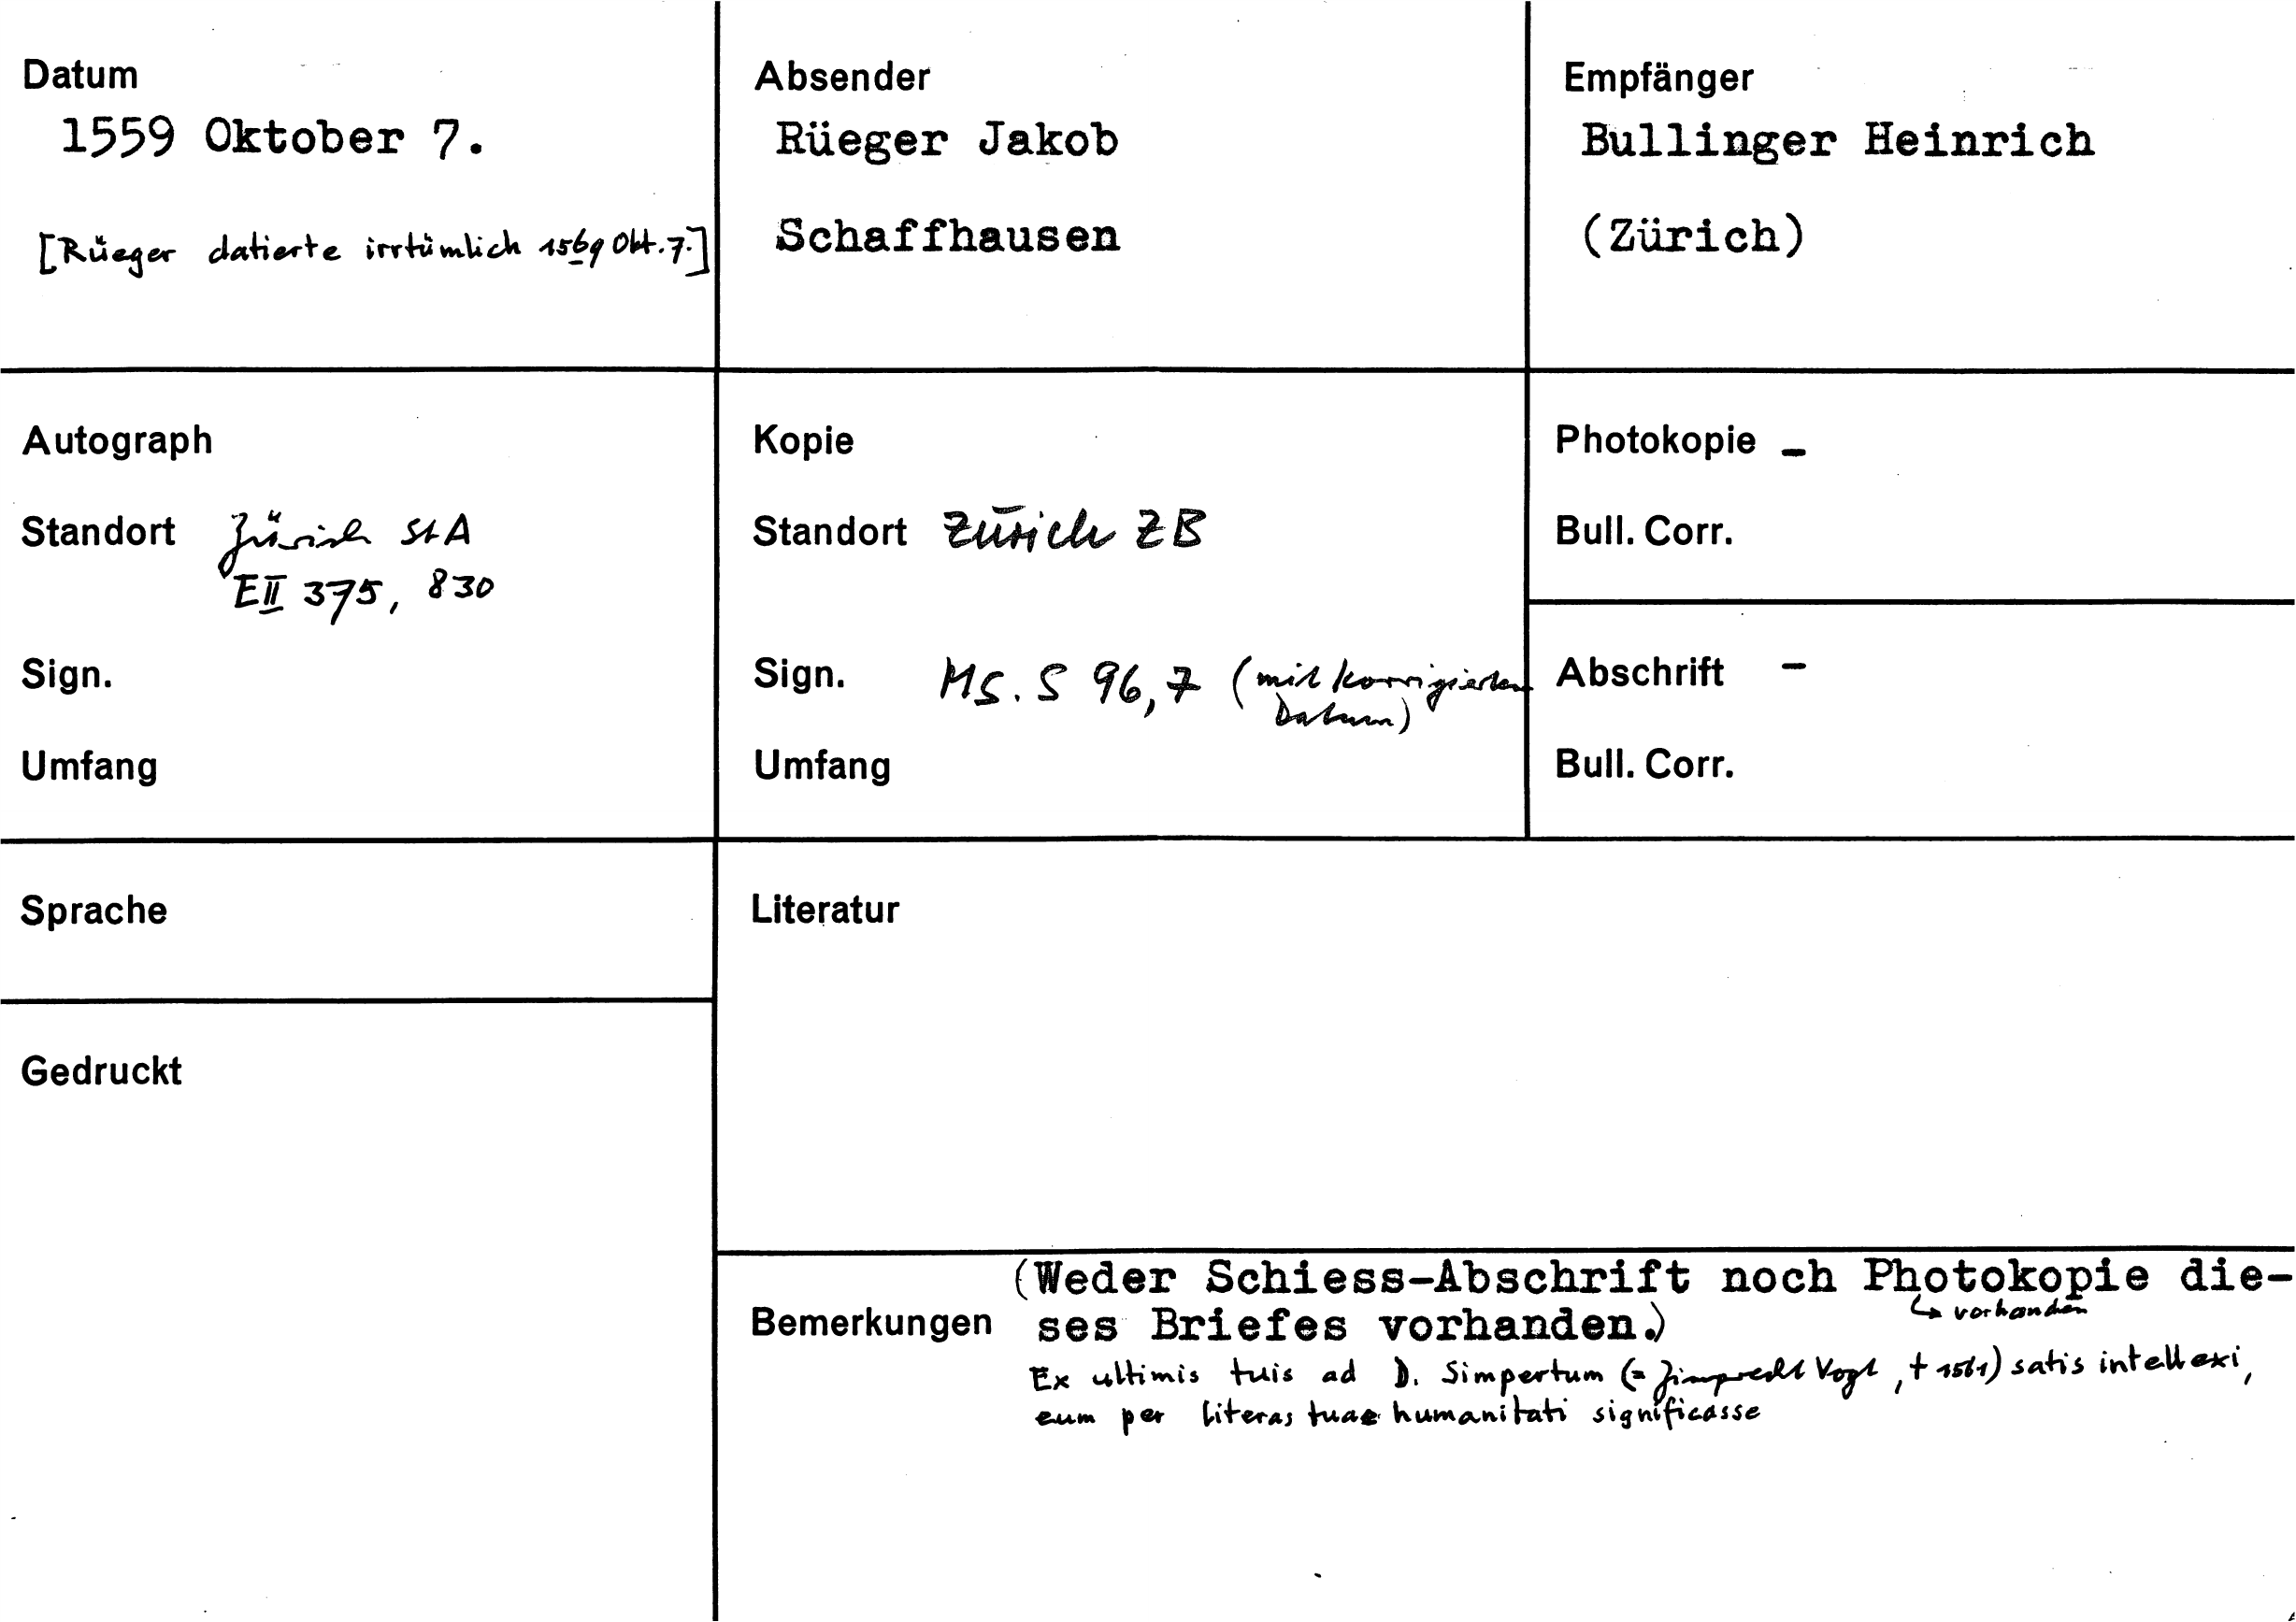 Datum
1559 Oktober 7.
[Rüeger datierte irrtümlich 1569 Okt. 7.]
Absender
Rüeger Jakob
Schaffhausen
Empfänger
Bullinger Heinrich
(Zürich)
Autograph
Standort Zürich StA
E II 375, 830
Sign.
Umfang
Kopie
Standort Zürich ZB
Sign. MS. S 96,7 (mit korrigiertem
Datum)
Umfang
Photokopie –
Bull. Corr.
Abschrift –
Bull. Corr.
Sprache
Gedruckt
Literatur
Bemerkungen
(Weder Schiess-Abschrift noch Photokopie die-
↳ vorhanden
ses Briefes vorhanden.)
Ex ultimis tuis ad D. Simpertum (= Zimprecht Vogt, † 1561) satis intellexi,
eum per literas tuae humanitati significasse